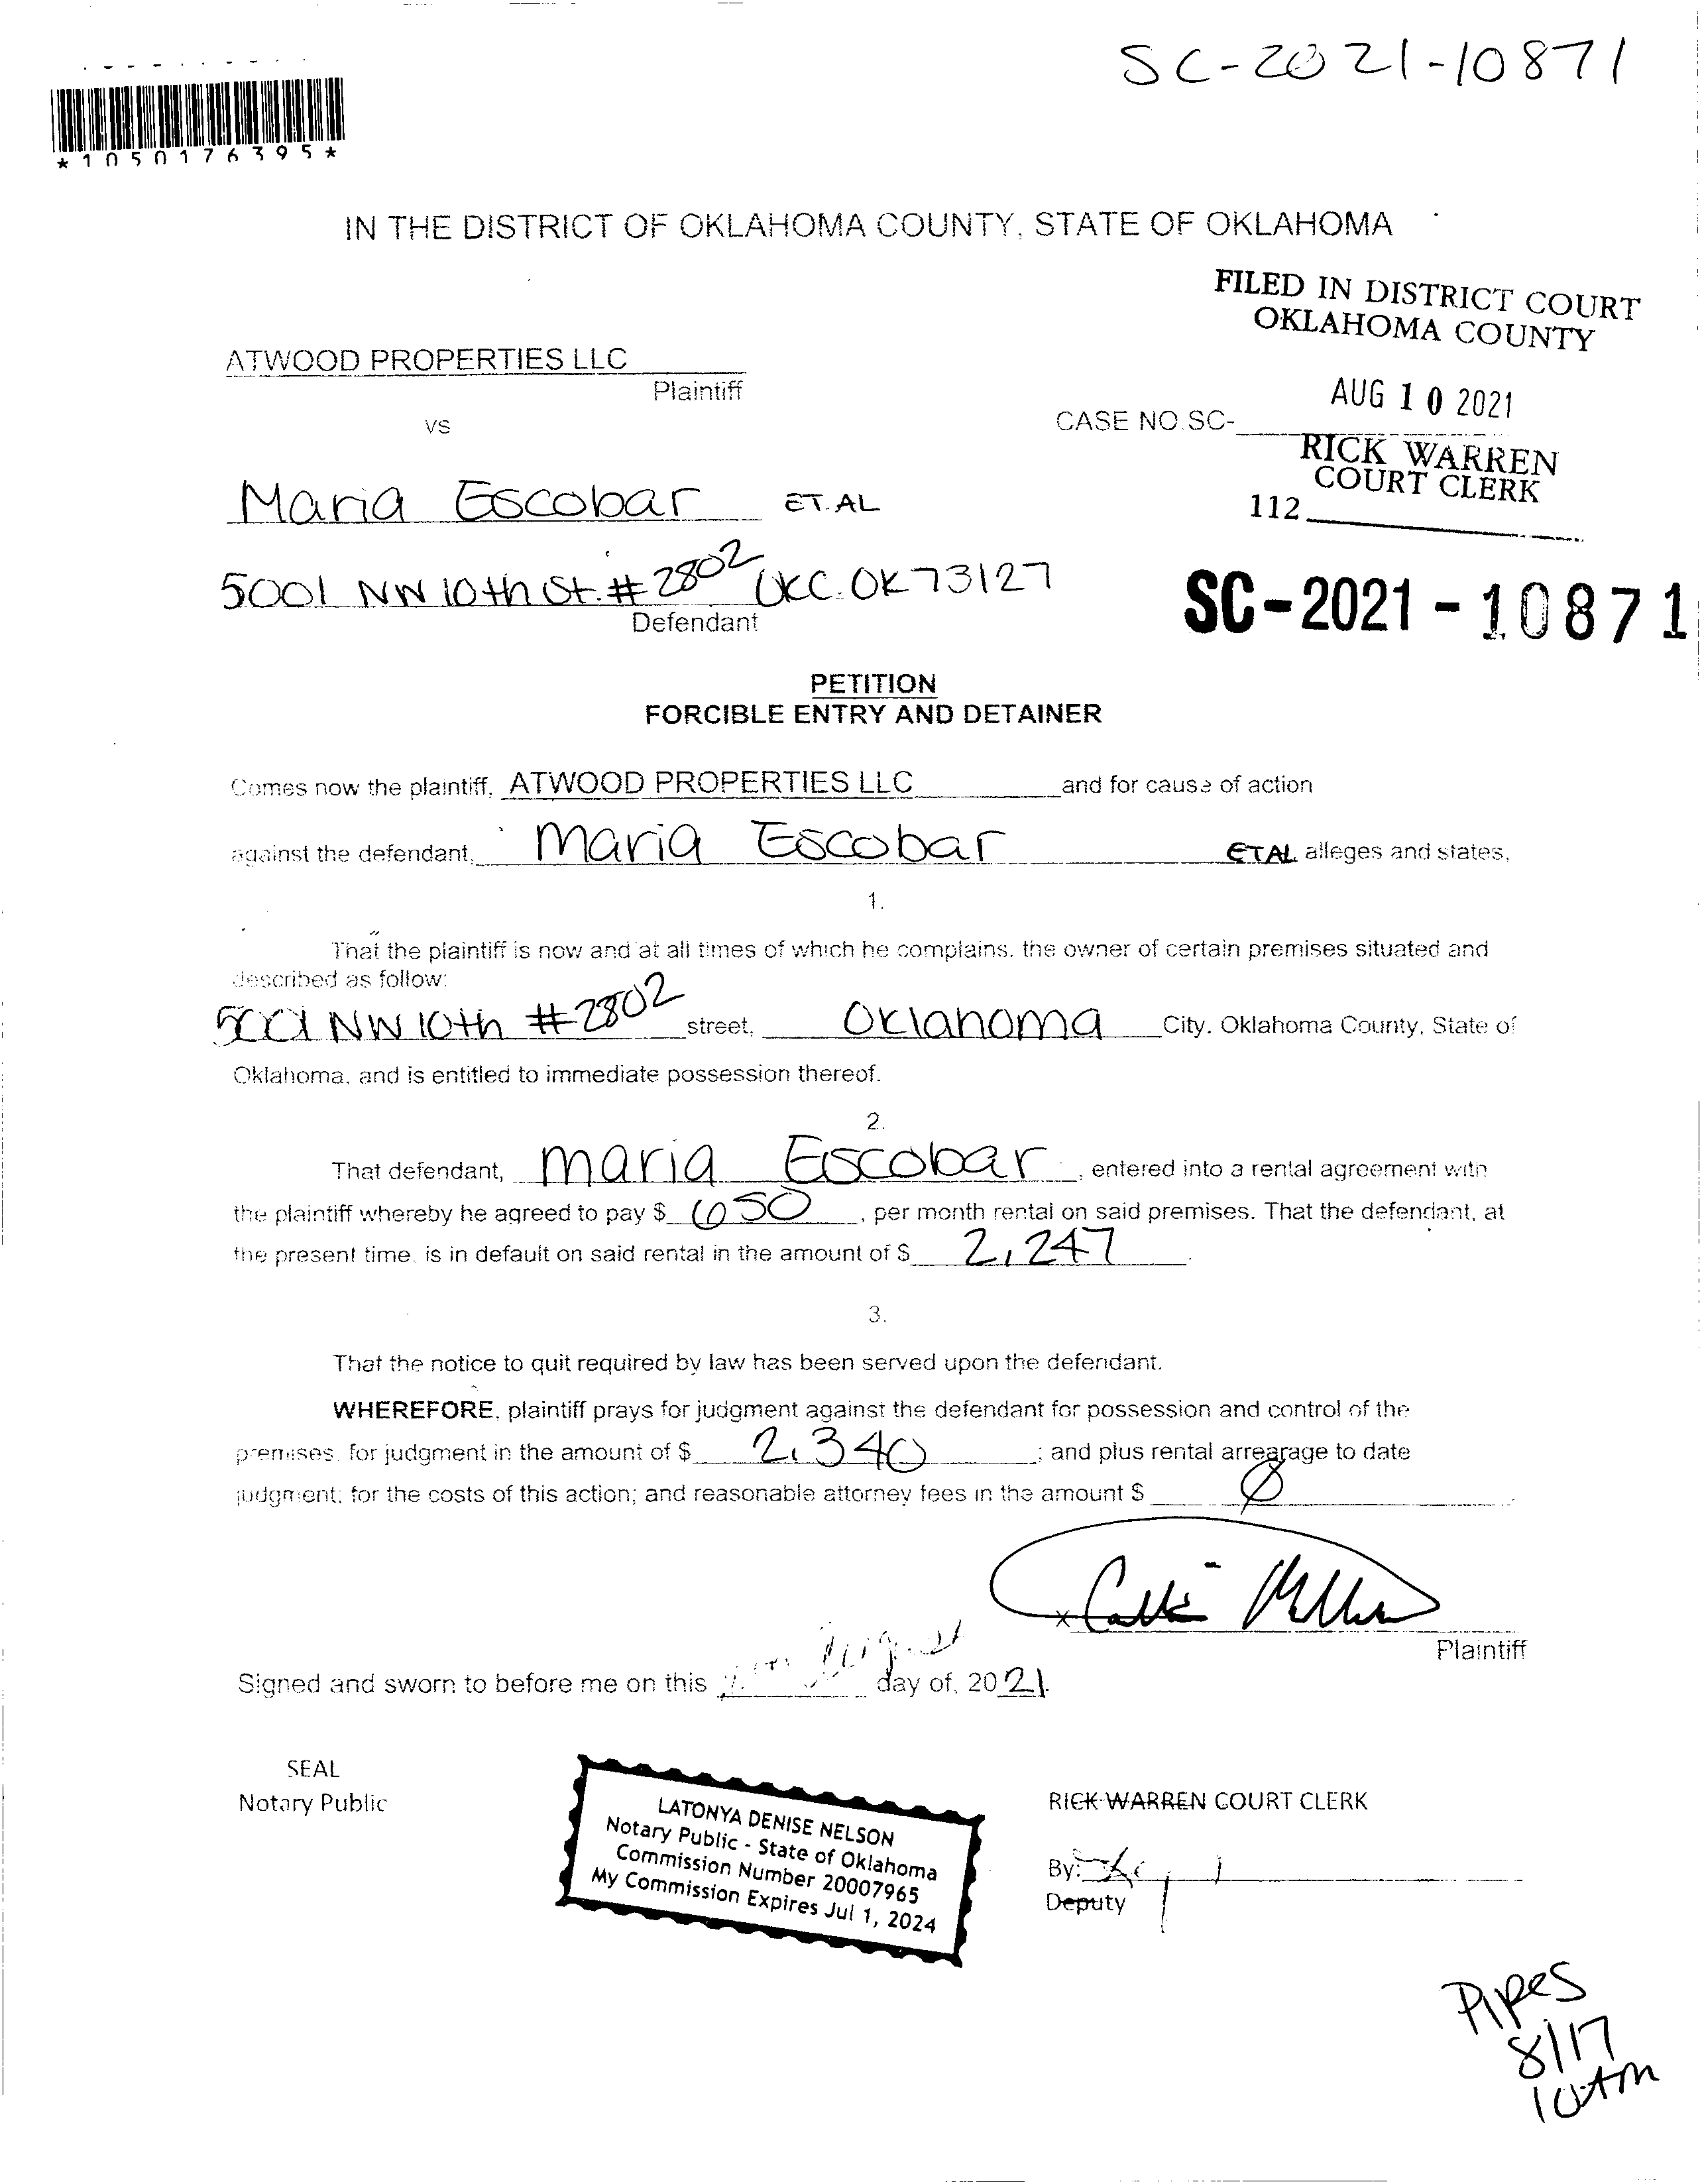 SC-2021-10871
*1050176395*
IN THE DISTRICT OF OKLAHOMA COUNTY, STATE OF OKLAHOMA
FILED IN DISTRICT COURT
OKLAHOMA COUNTY
ATWOOD PROPERTIES LLC
Plaintiff
AUG 10 2021
vs
CASE NO.SC-
RICK WARREN
COURT CLERK
Maria Escobar ET.AL
112
5001 NW 10th St. #2802 OKC. OK 73127
Defendant
SC-2021-10871
PETITION
FORCIBLE ENTRY AND DETAINER
Comes now the plaintiff, ATWOOD PROPERTIES LLC and for cause of action
against the defendant, Maria Escobar ETAL alleges and states,
1.
That the plaintiff is now and at all times of which he complains, the owner of certain premises situated and
described as follow:
5001 NW 10th #2802 street, Oklahoma City, Oklahoma County, State of
Oklahoma, and is entitled to immediate possession thereof.
2.
That defendant, Maria Escobar, entered into a rental agreement with
the plaintiff whereby he agreed to pay $ 650, per month rental on said premises. That the defendant, at
the present time, is in default on said rental in the amount of $ 2,247.
3.
That the notice to quit required by law has been served upon the defendant.
WHEREFORE, plaintiff prays for judgment against the defendant for possession and control of the
premises, for judgment in the amount of $ 2,340; and plus rental arrearage to date
judgment; for the costs of this action; and reasonable attorney fees in the amount $ Ø
x
Plaintiff
August
Signed and sworn to before me on this day of, 2021.
SEAL
Notary Public
LATONYA DENISE NELSON
Notary Public - State of Oklahoma
Commission Number 20007965
My Commission Expires Jul 1, 2024
RICK WARREN COURT CLERK
By:
Deputy
Pipes
8/17
10AM